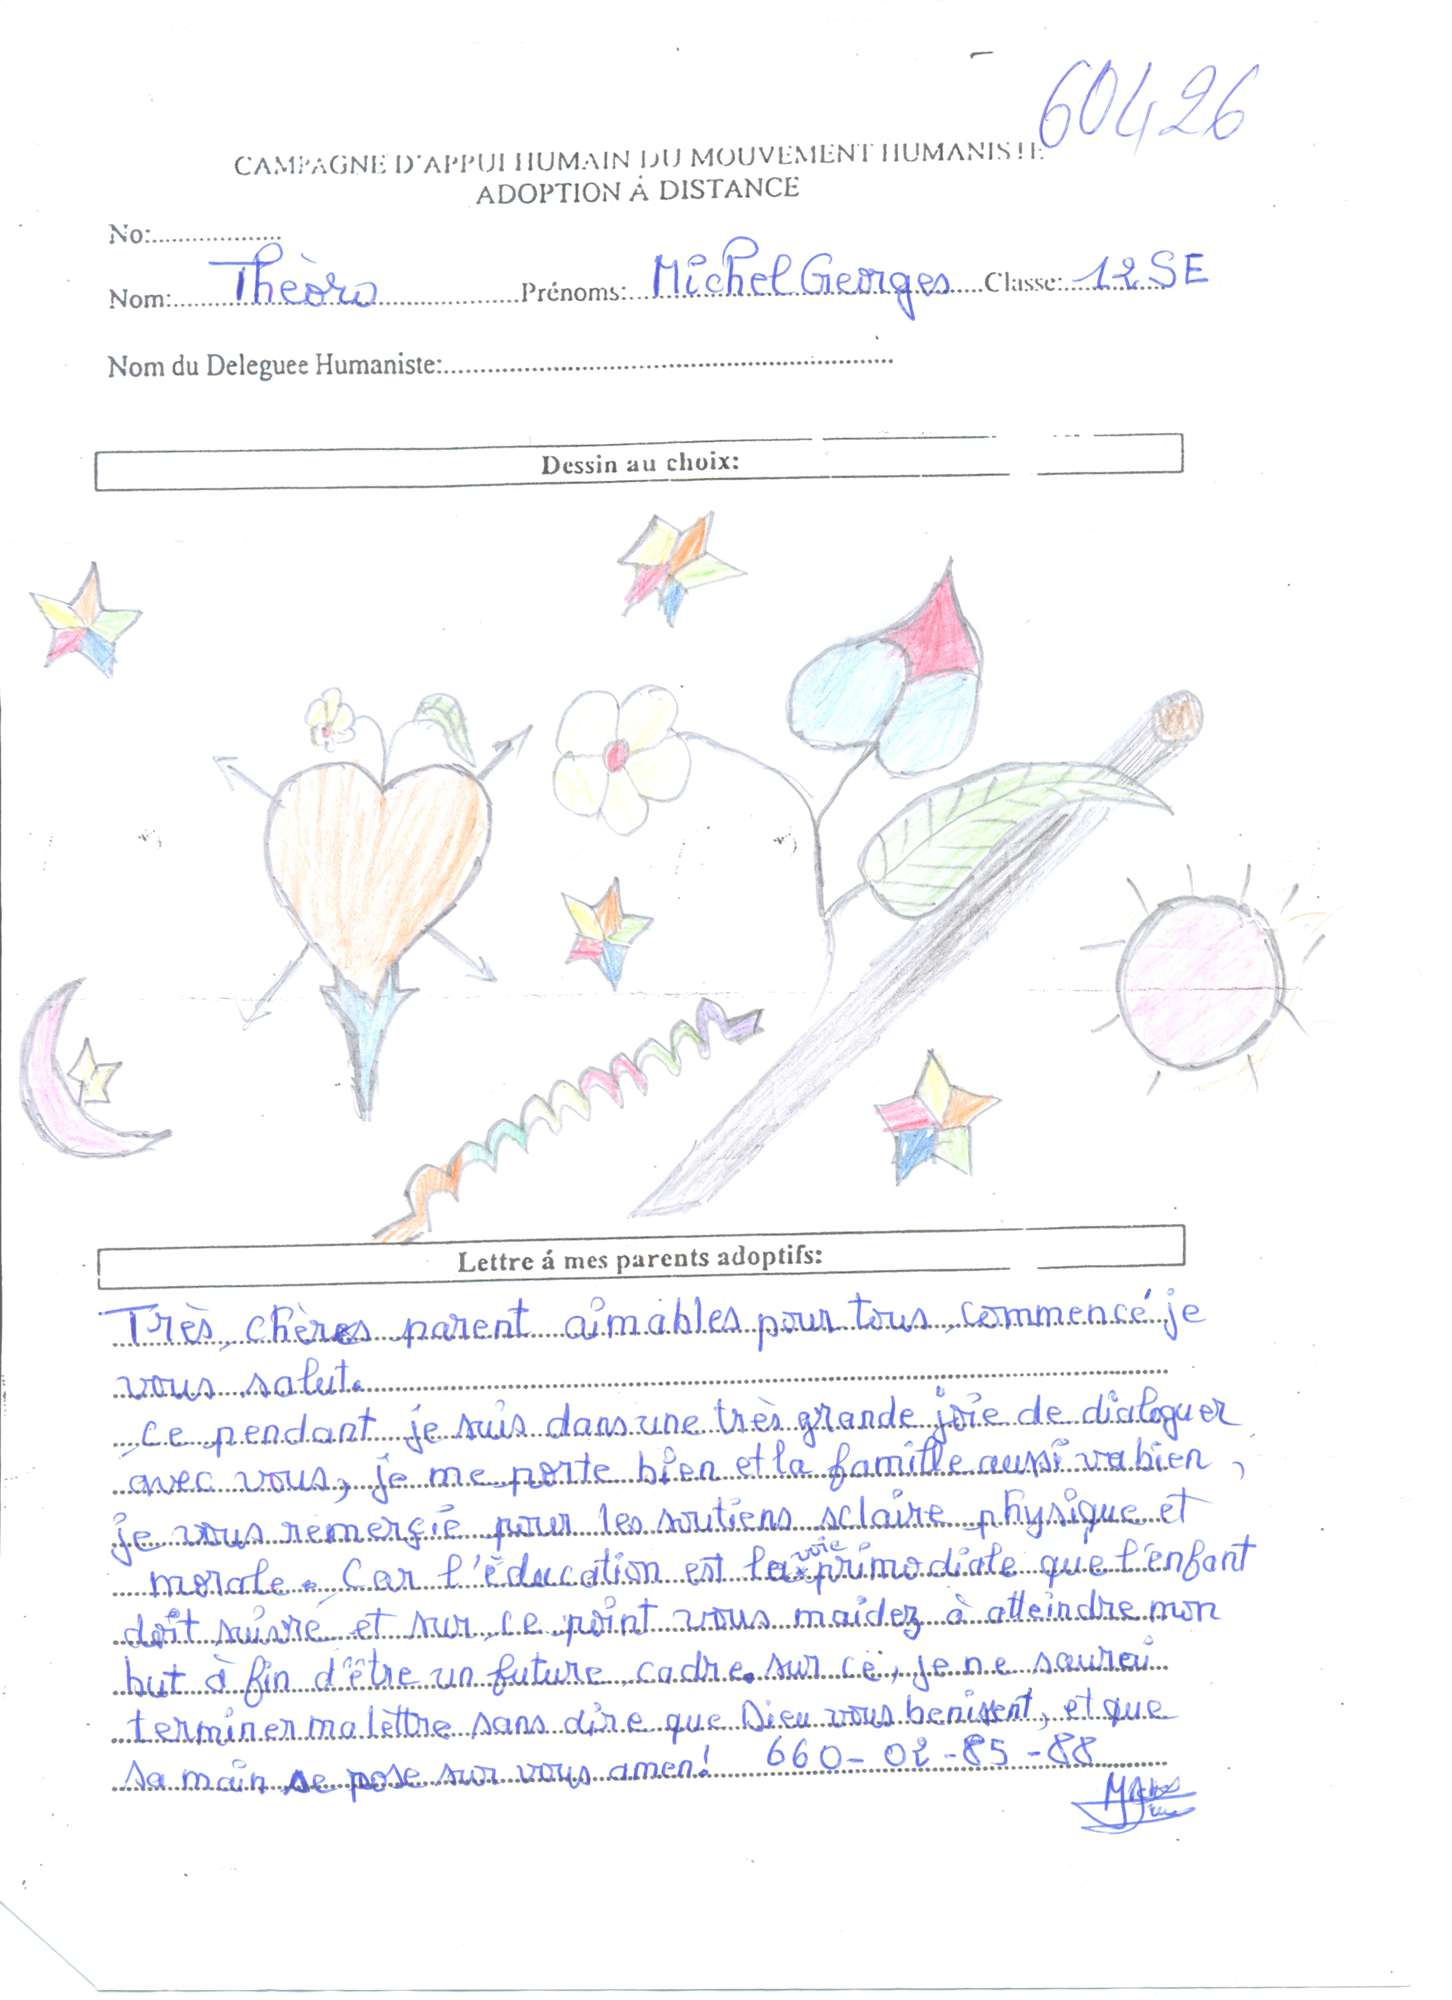 60426
CAMPAGNE D'APPUI HUMAIN DU MOUVEMENT HUMANISTE
ADOPTION À DISTANCE
No:...................
Nom: Thèoro Prénoms: Michel Georges Classe: 12SE
Nom du Deleguee Humaniste:...............................................................
Dessin au choix:
Lettre á mes parents adoptifs:
Très, chères parent aimables pour tous, commencé je
vous salut.
ce pendant je suis dans une très grande joie de dialoguer
avec vous, je me porte bien et la famille aussi va bien,
je vous remerçie pour les soutiens sclaire physique et
morale. Car l'éducation est la voie primodiale que l'enfant
doit suivre et sur ce point vous maidez à atteindre mon
but à fin d'être un future cadre. sur ce, je ne saurai
terminer ma lettre sans dire que Dieu vous benissent, et que
sa main se pose sur vous amen! 660-02-85-88